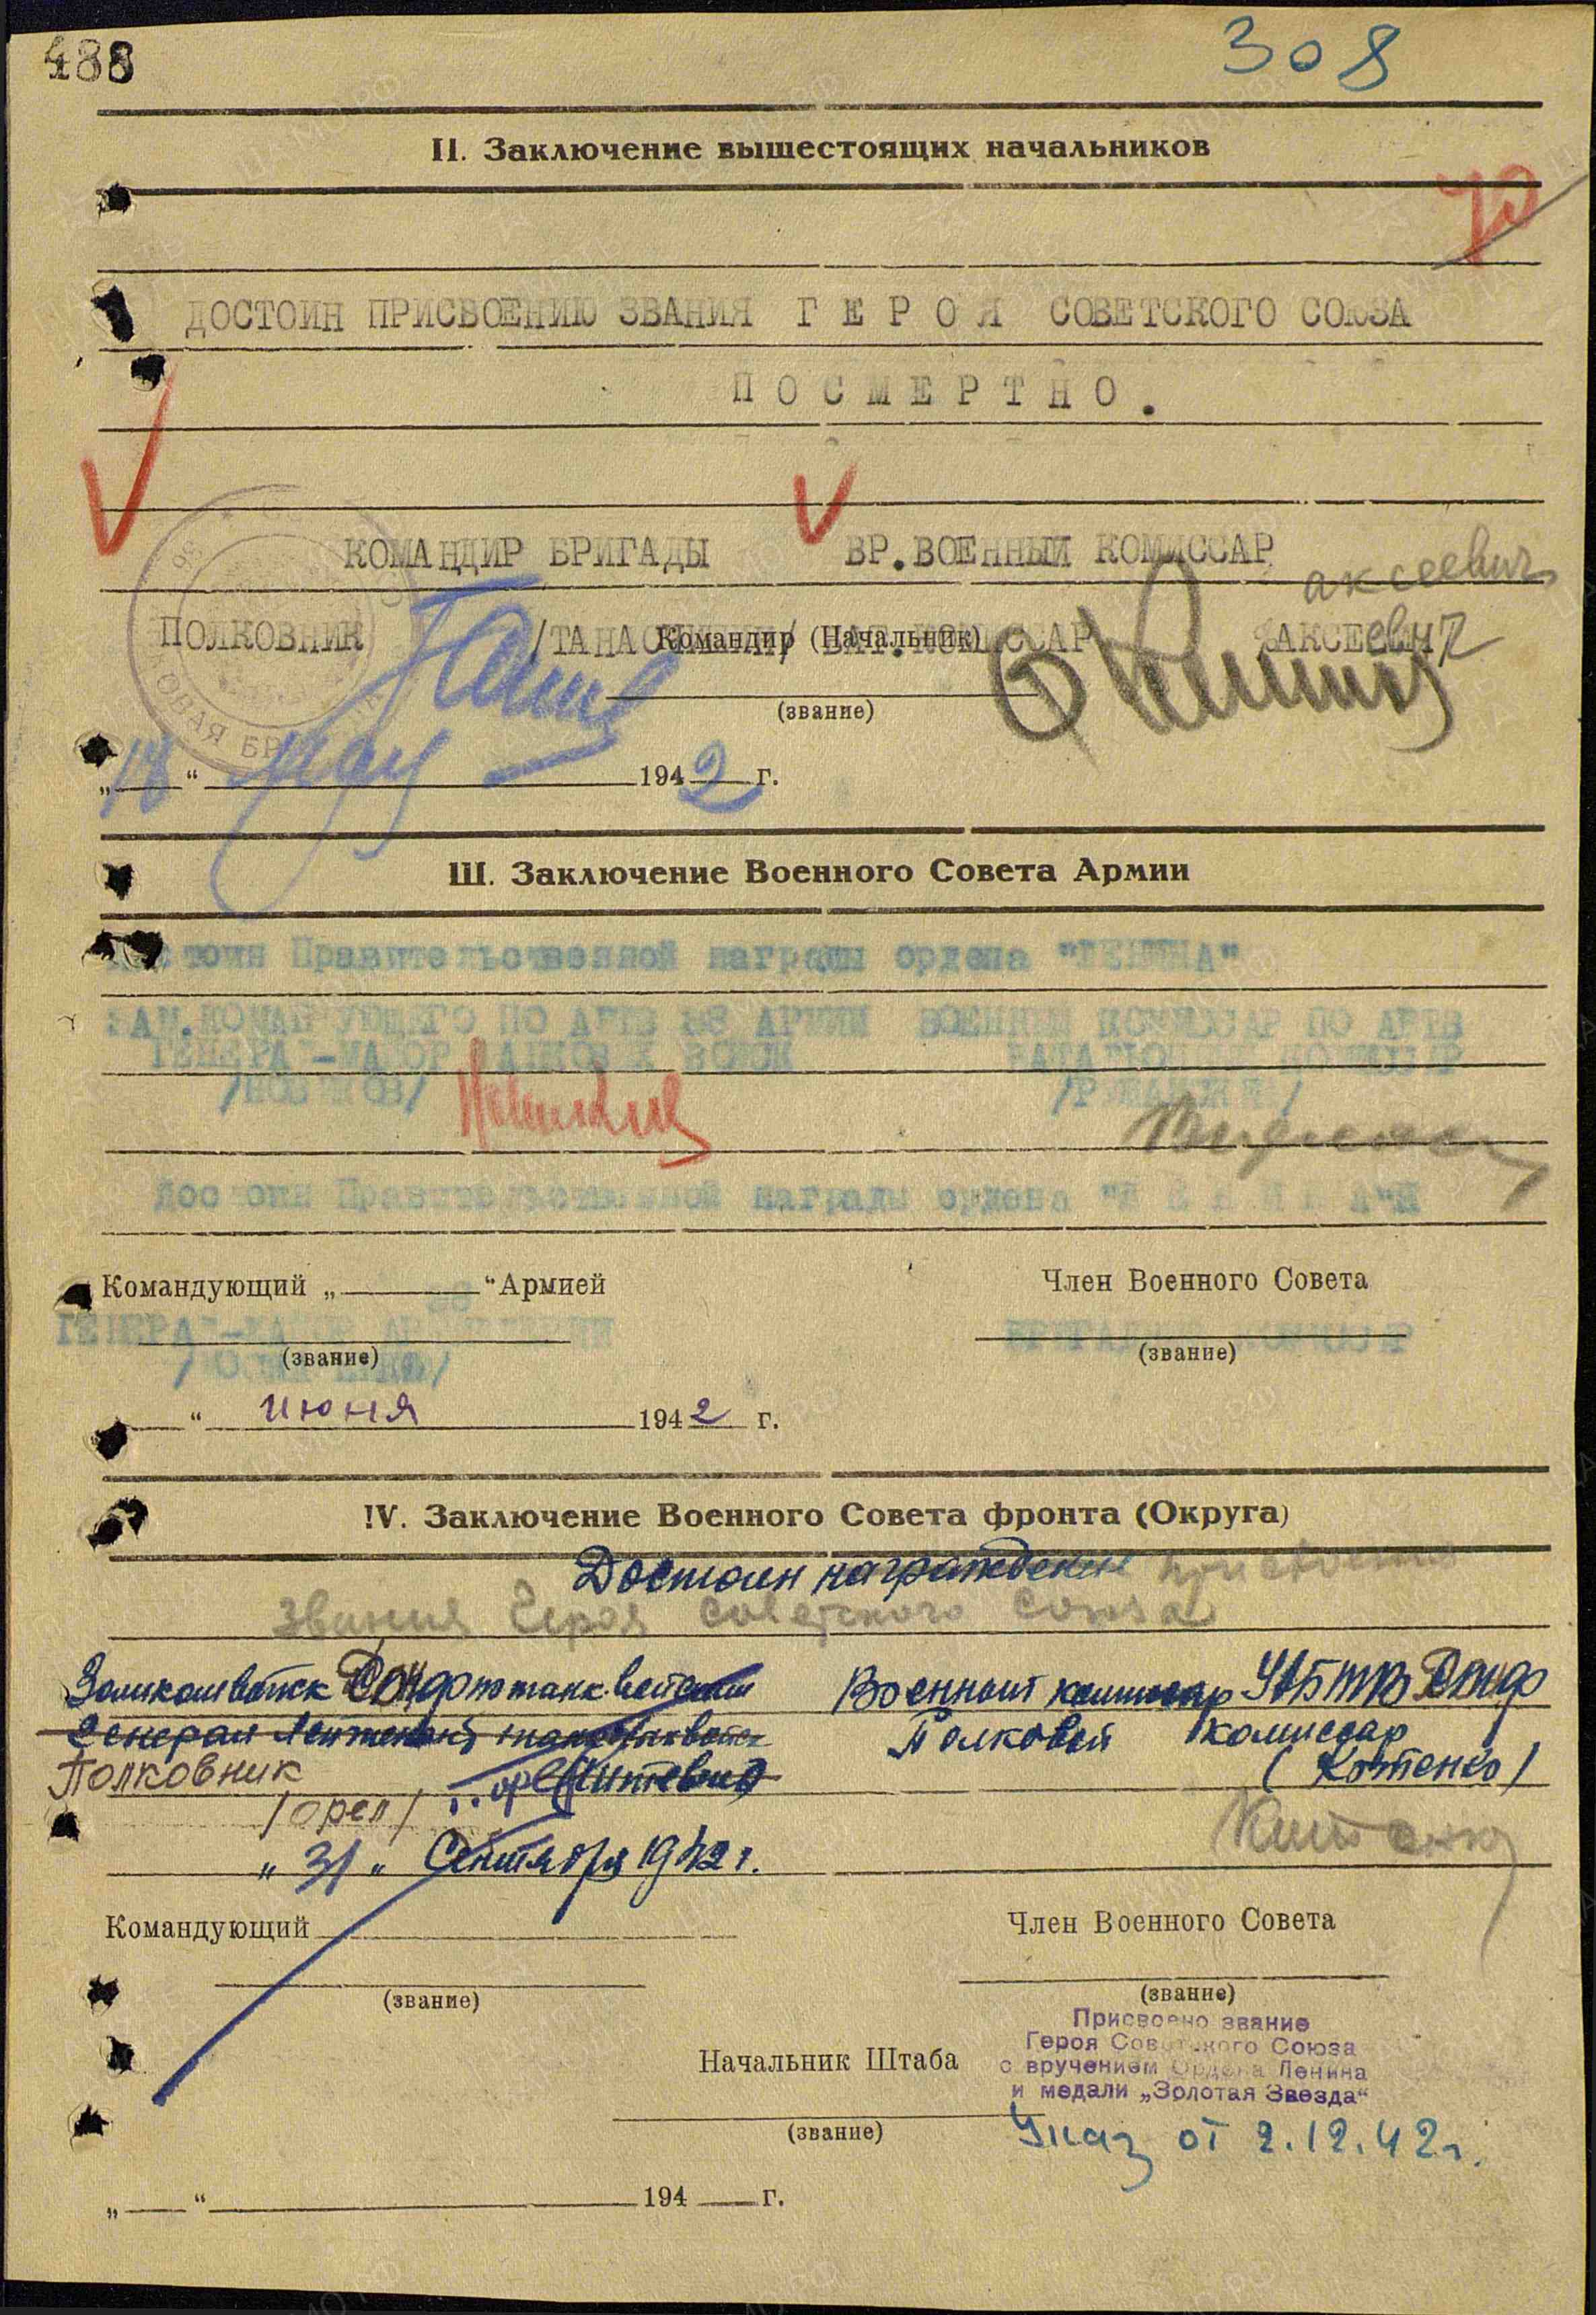 488
308
II. Заключение вышестоящих начальников
ДОСТОИН ПРИСВОЕНИЮ ЗВАНИЯ Г Е Р О Я СОВЕТСКОГО СОЮЗА
П О С М Е Р Т Н О .
КОМАНДИР БРИГАДЫ ВР.ВОЕННЫЙ КОМИССАР
аксеевич
ПОЛКОВНИК Командир (Начальник) БАТ.КОМИССАР АКСЕевич
(звание)
„18“ мая 1942 г.
III. Заключение Военного Совета Армии
Достоин Правительственной награды ордена "ЛЕНИНА"
ЗАМ.КОМАНДУЮЩЕГО ПО АБТВ 38 АРМИИ ВОЕННЫЙ КОМИССАР ПО АБТВ
ГЕНЕРАЛ-МАЙОР ТАНКОВЫХ ВОЙСК БАТАЛЬОННЫЙ КОМИССАР
/НОВИКОВ/
Достоин Правительственной награды ордена "Л Е Н И Н А"
Командующий „ “ Армией Член Военного Совета
ГЕНЕРАЛ-МАЙОР АРТИЛЛЕРИИ БРИГАДНЫЙ КОМИССАР
(звание) (звание)
“ июня 1942 г.
IV. Заключение Военного Совета фронта (Округа)
Достоин награждения присвоения
звания Героя Советского Союза
Замкомвойск Донфронта по танк. войскам Военный комиссар УАБТВ Донф
Генерал Лейтенант танковых войск Полковой комиссар
Полковник (Котенко)
/Орел/
„31„ Сентября 1942 г.
Командующий Член Военного Совета
(звание) (звание)
Присвоено звание
Героя Советского Союза
с вручением Ордена Ленина
и медали „Золотая Звезда“
Начальник Штаба
(звание)
Указ от 2.12.42г.
„ “ 194 г.